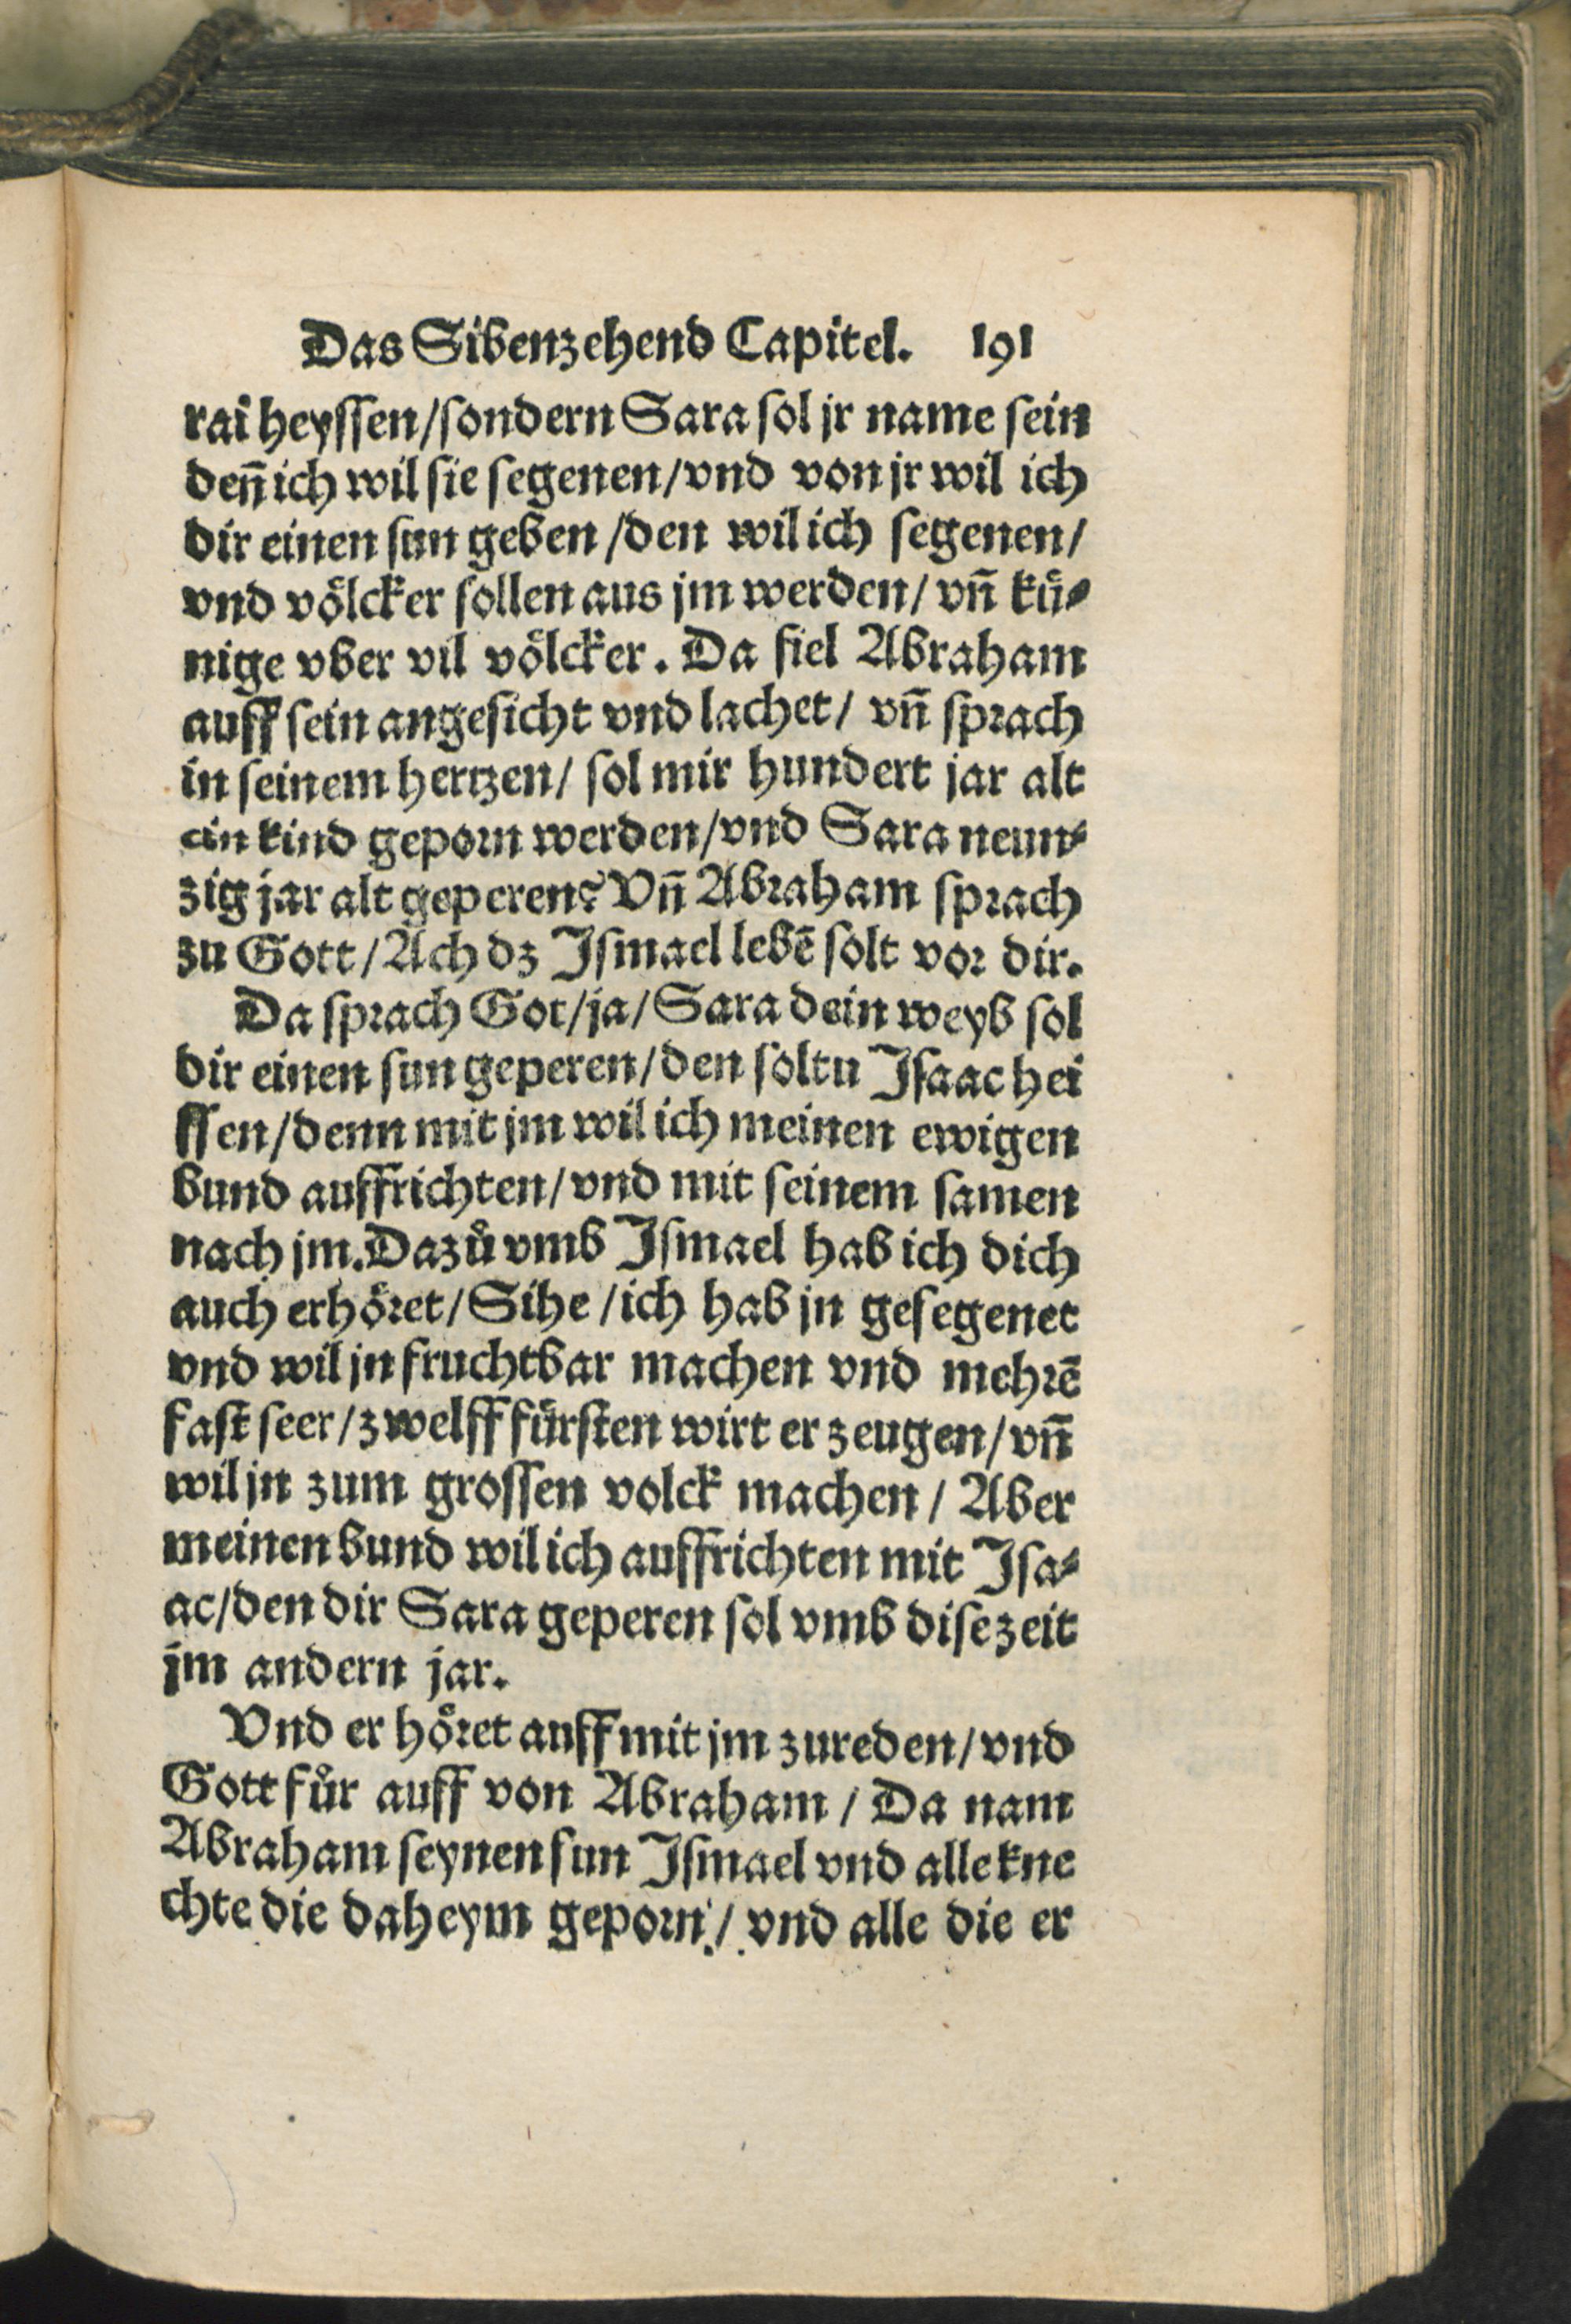 Das Sibenzehend Capitel. 191
rai heyſſen/ſondern Sara ſol jr name ſein
deñ ich wil ſie ſegenen/vnd von jr wil ich
dir einen ſun geben/den wil ich ſegenen/
vnd voͤlcker ſollen aus jm werden/vñ kuͤ⸗
nige vber vil voͤlcker. Da fiel Abraham
auff ſein angeſicht vnd lachet/ vñ ſprach
in ſeinem hertzen/ ſol mir hundert jar alt
ein kind geporn werden/vnd Sara neun⸗
zig jar alt geperen? Vñ Abraham ſprach
zu Gott/Ach dz Iſmael lebē ſolt vor dir.
Da ſprach Got/ja/Sara dein weyb ſol
dir einen ſun geperen/den ſoltu Iſaac hei
ſſen/denn mit jm wil ich meinen ewigen
bund auffrichten/vnd mit ſeinem ſamen
nach jm. Dazů vmb Iſmael hab ich dich
auch erhoͤret/Sihe/ich hab jn geſegenet
vnd wil jn fruchtbar machen vnd mehrē
faſt ſeer/zwelff fuͤrſten wirt er zeugen/vñ
wil jn zum groſſen volck machen/ Aber
meinen bund wil ich auffrichten mit Iſa⸗
ac/den dir Sara geperen ſol vmb diſe zeit
jm andern jar.
Vnd er hoͤret auff mit jm zureden/vnd
Gott fůr auff von Abraham/ Da nam
Abraham ſeynen ſun Iſmael vnd alle kne
chte die daheym geporn/ vnd alle die er